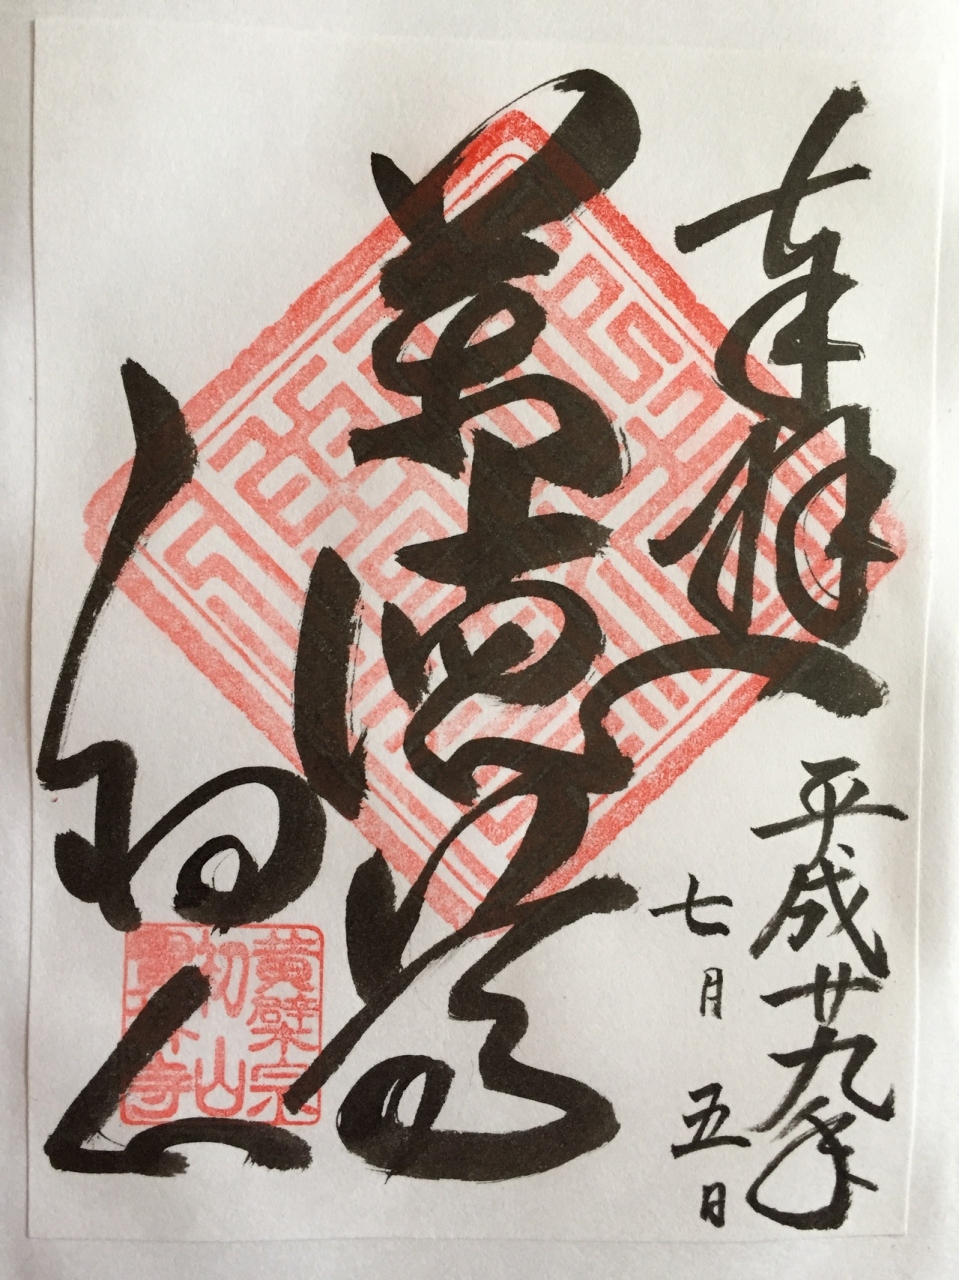 奉拝
平成廿九年
七月五日
萬徳尊
黄檗宗
初山